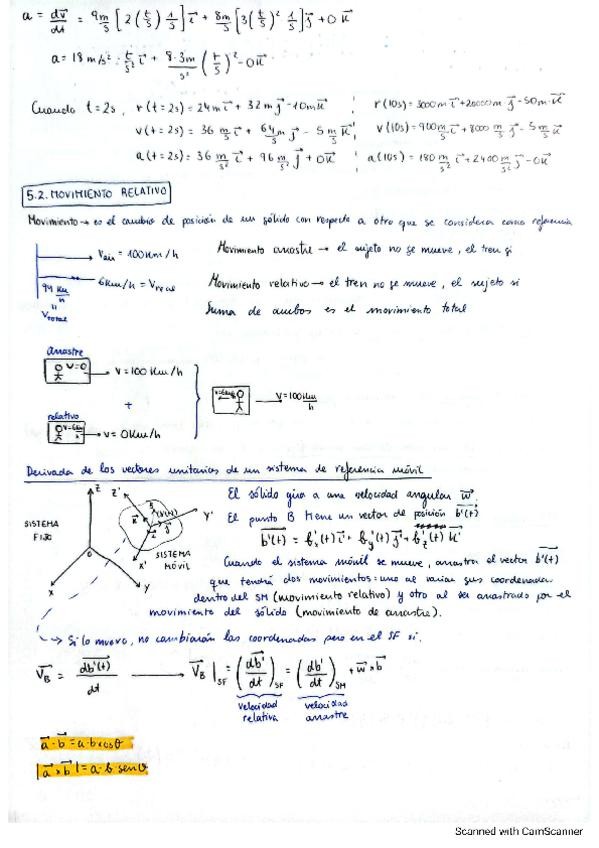 a = dv/dt = 9 m/s [2 (t/s) 1/s] i + 8 m/s [3 (t/s)² 1/s] j + 0 k
a = 18 m/s² · t/s² i + 8·3 m/s² (t/s)² - 0 k
Cuando t = 2s, r(t=2s) = 24m i + 32m j - 10m k ; r(10s) = 3000m i + 20000m j - 50m k
v(t=2s) = 36 m/s i + 64 m/s j - 5 m/s k ; v(10s) = 900 m/s i + 8000 m/s j - 5 m/s k
a(t=2s) = 36 m/s² i + 96 m/s² j + 0k ; a(10s) = 180 m/s² i + 2400 m/s² j - 0k
5.2. MOVIMIENTO RELATIVO
Movimiento → es el cambio de posición de un sólido con respecto a otro que se considera como referencia
V = 100 Km/h
6Km/h = V
94 Km/h
"
Vtotal
Movimiento arrastre → el sujeto no se mueve, el tren sí
Movimiento relativo → el tren no se mueve, el sujeto sí
Suma de ambos es el movimiento total
arrastre
V=0
V = 100 Km/h
+
relativo
V = 0Km/h
V = 100 Km/h
Derivada de los vectores unitarios de un sistema de referencia móvil
SISTEMA FIJO
Z
X
Y
O
Z'
Y'
X'
SISTEMA MÓVIL
El sólido gira a una velocidad angular w.
El punto B tiene un vector de posición b'(t)
b'(t) = b'x(t) i + b'y(t) j + b'z(t) k'
Cuando el sistema móvil se mueve, arrastra el vector b'(t)
que tendrá dos movimientos: uno al variar sus coordenadas
dentro del SM (movimiento relativo) y otro al ser arrastrado por el
movimiento del sólido (movimiento de arrastre).
→ Si lo muevo, no cambiarán las coordenadas pero en el SF sí.
VB = db'(t)/dt → VB |SF = (db'/dt)SF = (db'/dt)SM + w × b
velocidad relativa
velocidad arrastre
a · b = a · b cos θ
|a × b| = a · b · sen θ
Scanned with CamScanner